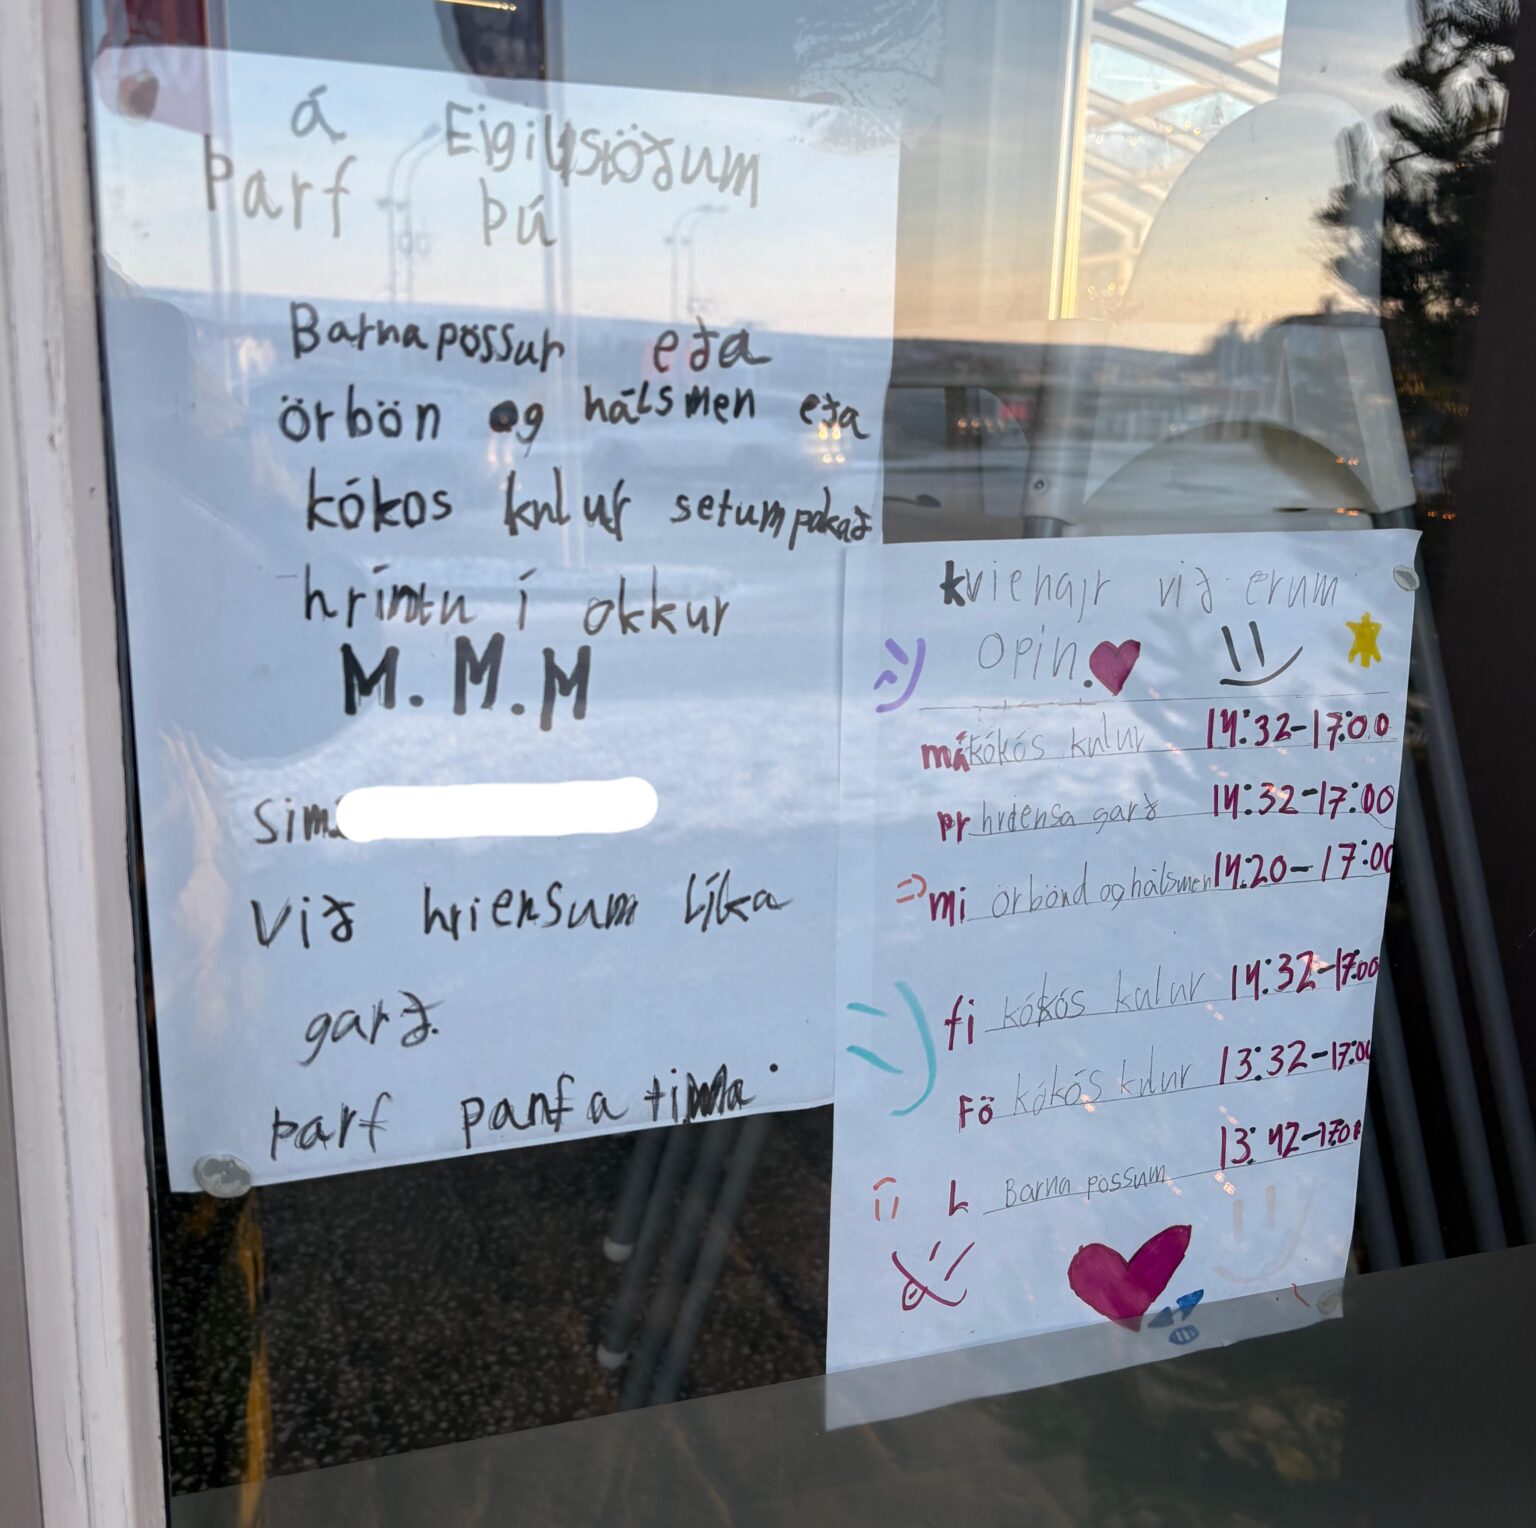 á Eigilsstöðum
þarf þú
Barnapössur eða
örbön og hálsmen eða
kókos kulur setum pakað
hríntu í okkur
M.M.M
sím
við hriensum líka
garð.
þarf panta tíma.
kvienajr við erum
opin.
má kókós kulur 14:32-17:00
þr hriensa garð 14:32-17:00
mi örbönd og hálsmen 14:20-17:00
fi kókós kulur 14:32-17:00
Fö kókós kulur 13:32-17:00
L Barna pössum 13:42-17:0